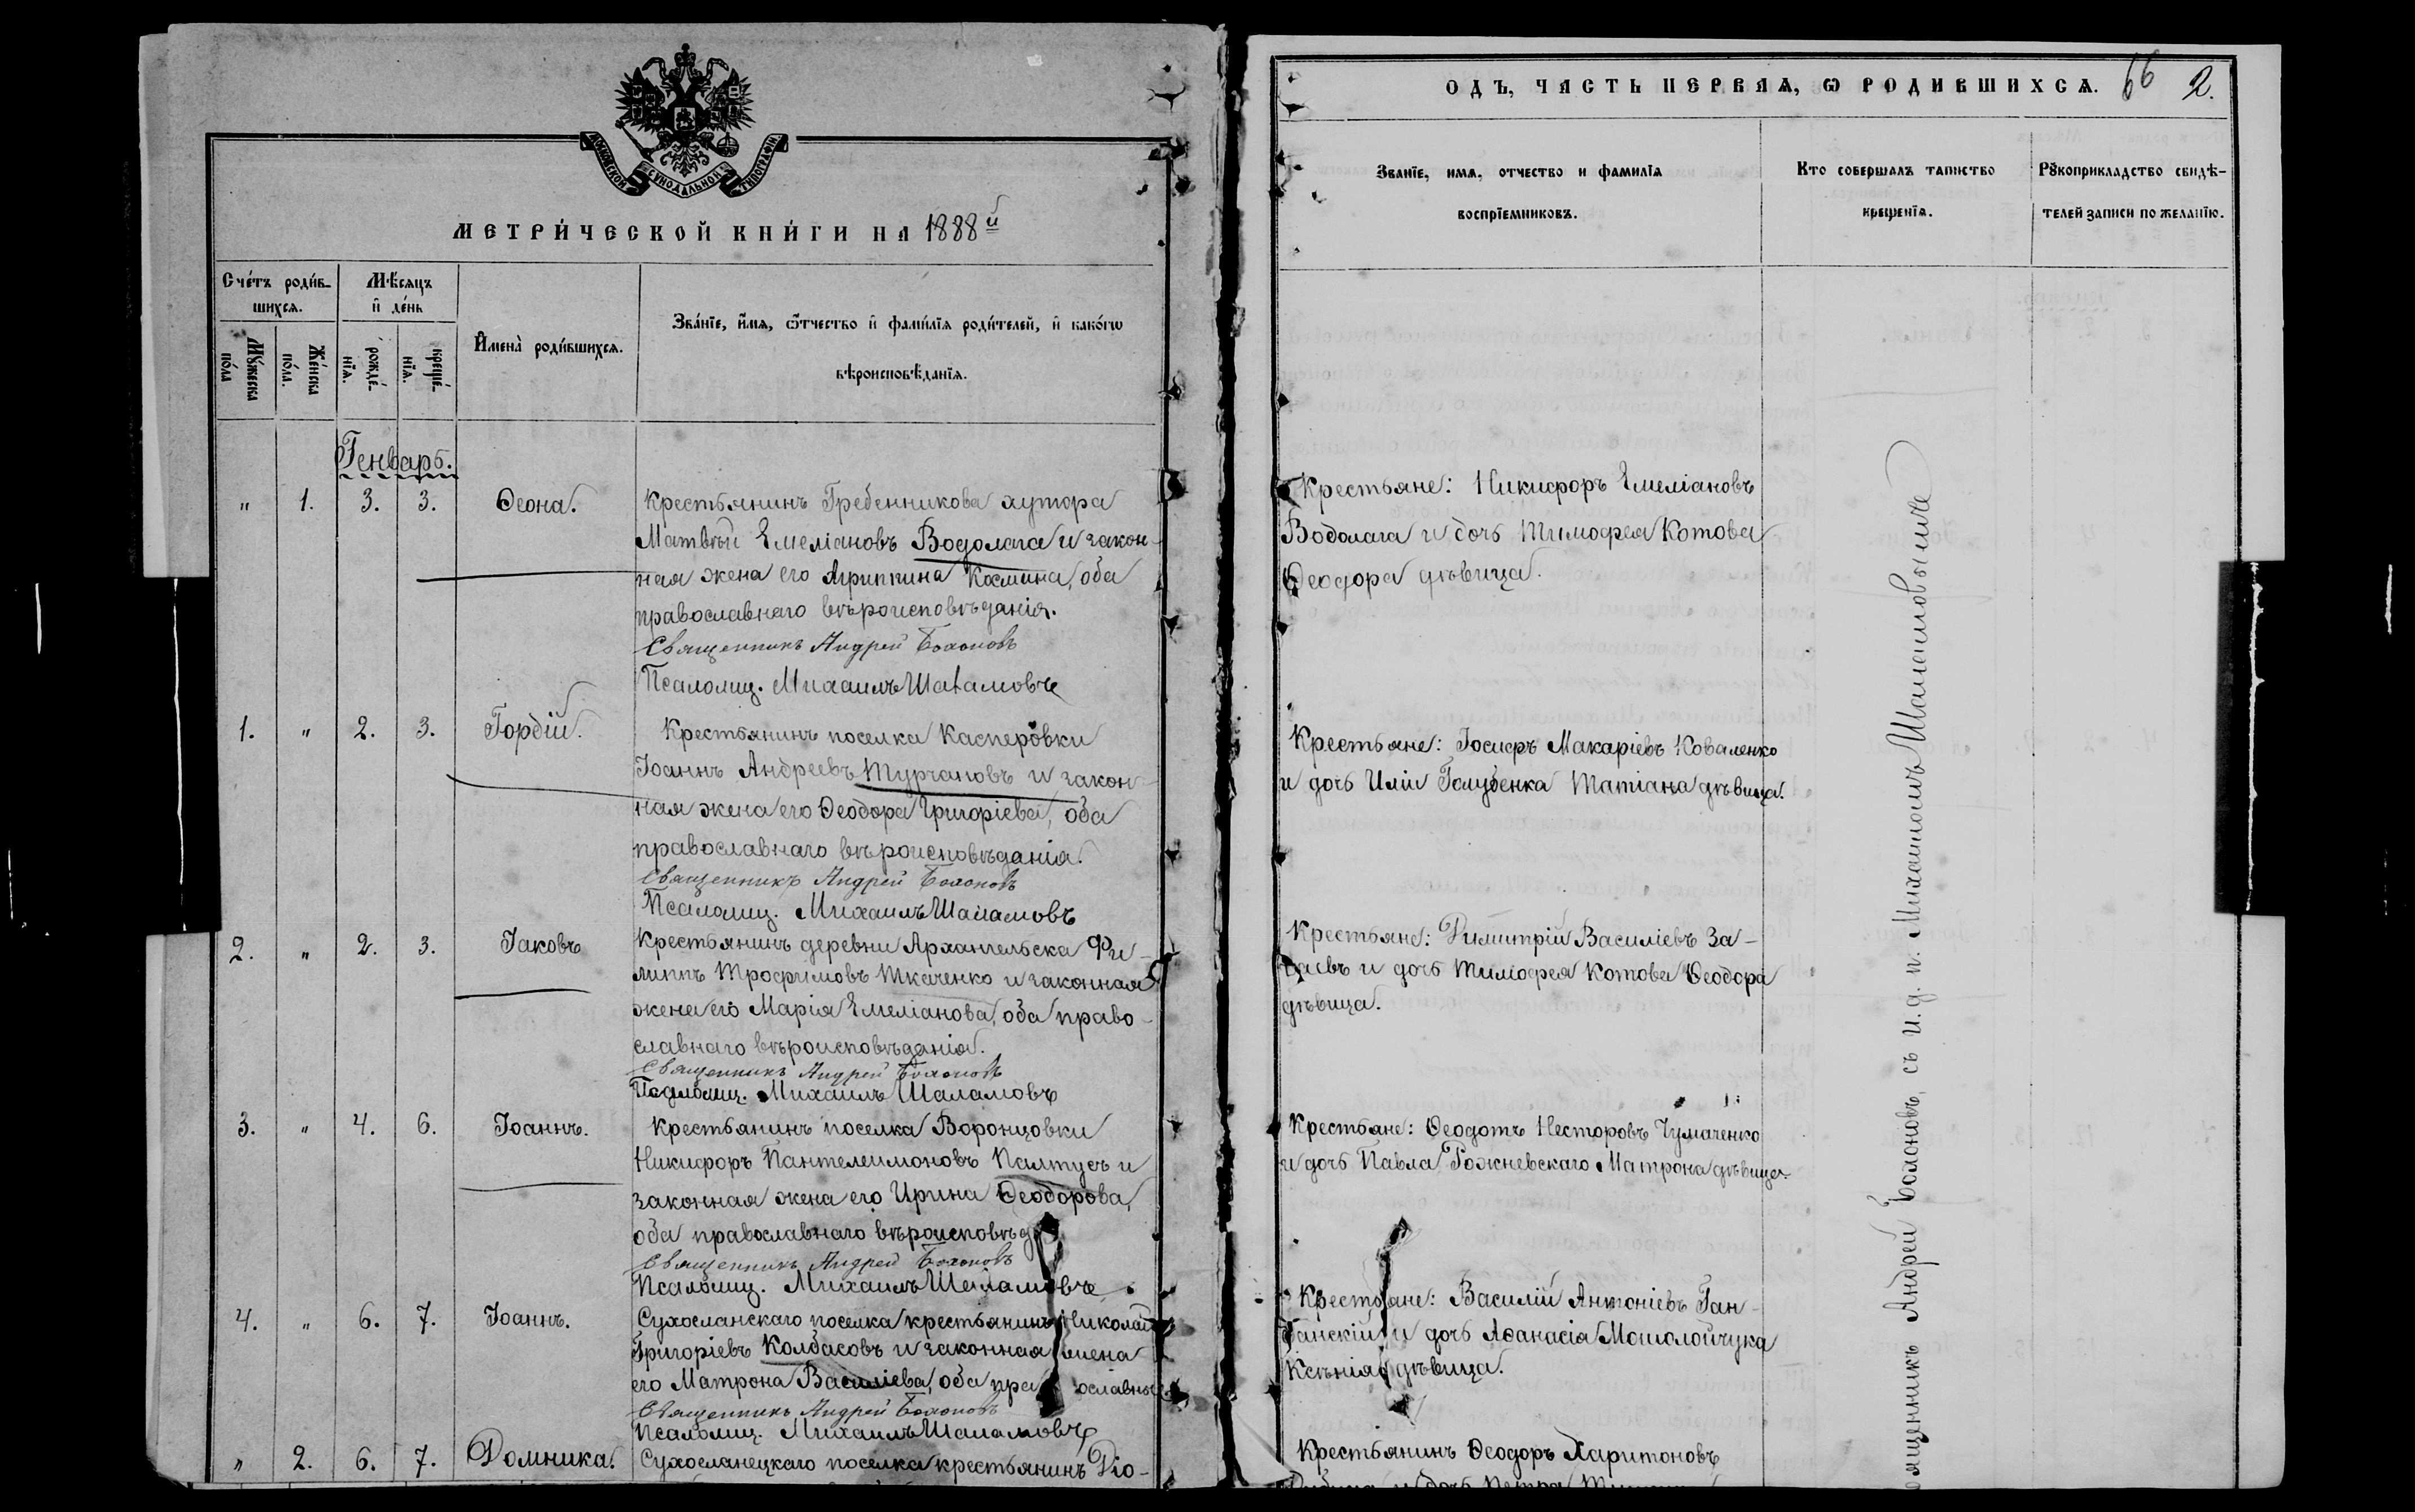 МОСКОВСКОЙ СУНОДАЛЬНОЙ ТИПОГРАФІИ.
МЕТРИ́ЧЕСКОЙ КНИ́ГИ НА 1888й
Сче́тъ роди́в-
шихся.
Мѣ́сяцъ
и҆ де́нь
Мꙋ́жеска
по́ла
Же́нска
по́ла.
рожде́-
нїя.
креще́-
нїя.
И҆мена̀ роди́вшихся.
Зва́нїе, и҆́мя, ѻ҆́тчество и҆ фами́лїя роди́телей, и҆ како́гѡ
вѣроисповѣ́данїя.
Генварь.
" 1. 3. 3. Ѳеона.
Крестьянинъ Гребенникова хутора
Матвѣй Емеліановъ Водолага и закон-
ная жена его Агриппина Космина, оба
православнаго вѣроисповѣданія.
Священникъ Андрей
Псаломщ. Михаилъ Шаламовъ
1. " 2. 3. Гордій.
Крестьянинъ поселка Касперовки
Іоаннъ Андреевъ Турчановъ и закон-
ная жена его Ѳеодора Григоріева, оба
православнаго вѣроисповѣданія.
Священникъ Андрей
Псаломщ. Михаилъ Шаламовъ
2. " 2. 3. Іаковъ
Крестьянинъ деревни Архангельска Фи-
липпъ Трофимовъ Ткаченко и законная
жена его Марія Емеліанова, оба право-
славнаго вѣроисповѣданія.
Священникъ Андрей
Псаломщ. Михаилъ Шаламовъ
3. " 4. 6. Іоаннъ.
Крестьянинъ поселка Воронцовки
Никифоръ Пантелеимоновъ Палтусъ и
законная жена его Ирина Ѳеодорова,
оба православнаго вѣроисповѣд
Священникъ Андрей
Псаломщ. Михаилъ Шаламовъ
4. " 6. 7. Іоаннъ.
Сухосланскаго поселка крестьянинъ Николай
Григоріевъ Колбасовъ и законная жена
его Матрона Василіева, оба православны
Священникъ Андрей
Псаломщ. Михаилъ Шаламовъ
" 2. 6. 7. Домника.
Сухосланецкаго поселка крестьянинъ Діо-
ОДЪ, ЧАСТЬ ПЕРВАЯ, Ѡ РОДИВШИХСЯ. 66 2.
Званїе, имя, отчество и фамилїя
воспрїемниковъ.
Кто совершалъ таинство
крещенїя.
Рꙋкоприкладство свидѣ-
телей записи по желанїю.
Крестьяне: Никифоръ Емеліановъ
Водолага и дочь Тимофея Котова
Ѳеодора дѣвица.
Крестьяне: Іосифъ Макаріевъ Коваленко
и дочь Иліи Голубенка Татіана дѣвица.
Крестьяне: Димитрій Василіевъ За-
и дочь Тимофея Котова Ѳеодора
дѣвица.
Крестьяне: Ѳеодотъ Несторовъ Чумаченко
и дочь Павла Рожневскаго Матрона дѣвица.
Крестьяне: Василій Антоніевъ Ган-
и дочь Аѳанасія
Ксенія дѣвица.
Крестьянинъ Ѳеодоръ Харитоновъ
и дочь Петра
ященникъ Андрей съ и. д. п. Михаиломъ Шаламовымъ